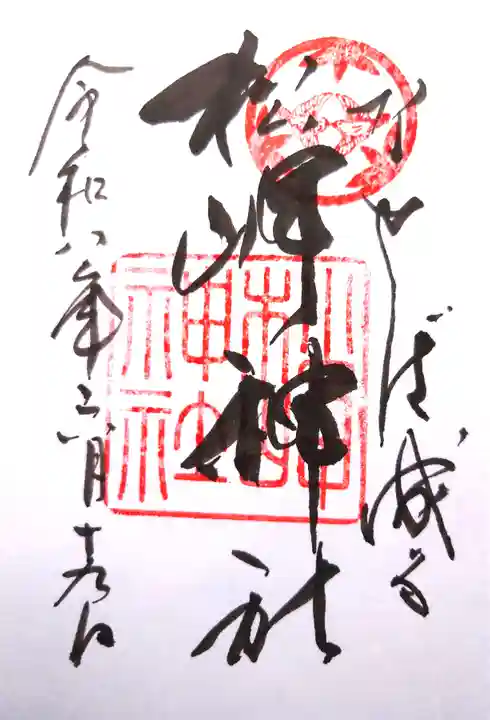 なせば成る
松岬神社
令和八年六月
松岬神社